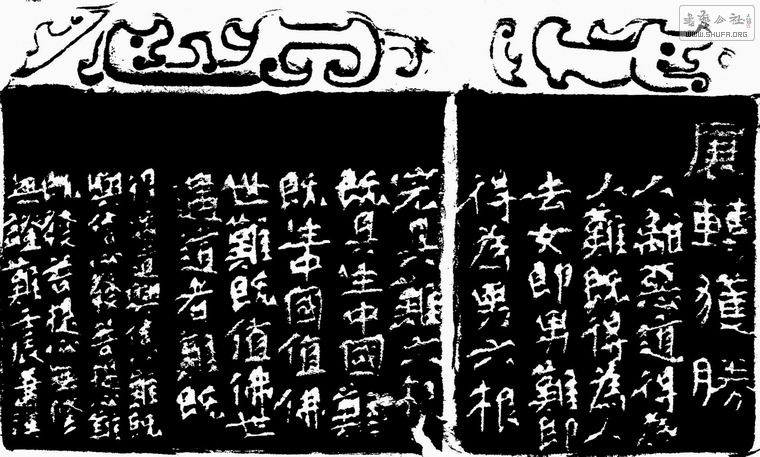 展轉獲勝
人離惡道得為
人難既得為人
去女即男難即
得為男六根
完具難六根
既具生中國難
既生中國值佛
世難既值佛世
遇道者難既
得遇道興信心難既
興信心發菩提心難
既發菩提心無修
無證難壬辰
書法公社
WWW.SHUFA.ORG